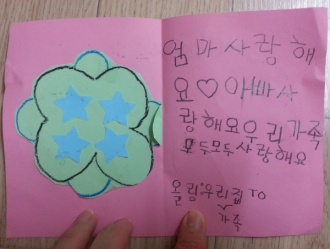 엄마사랑해
요♡아빠사
랑해요우리가족
모두모두사랑해요
올림:우리집 TO
가족